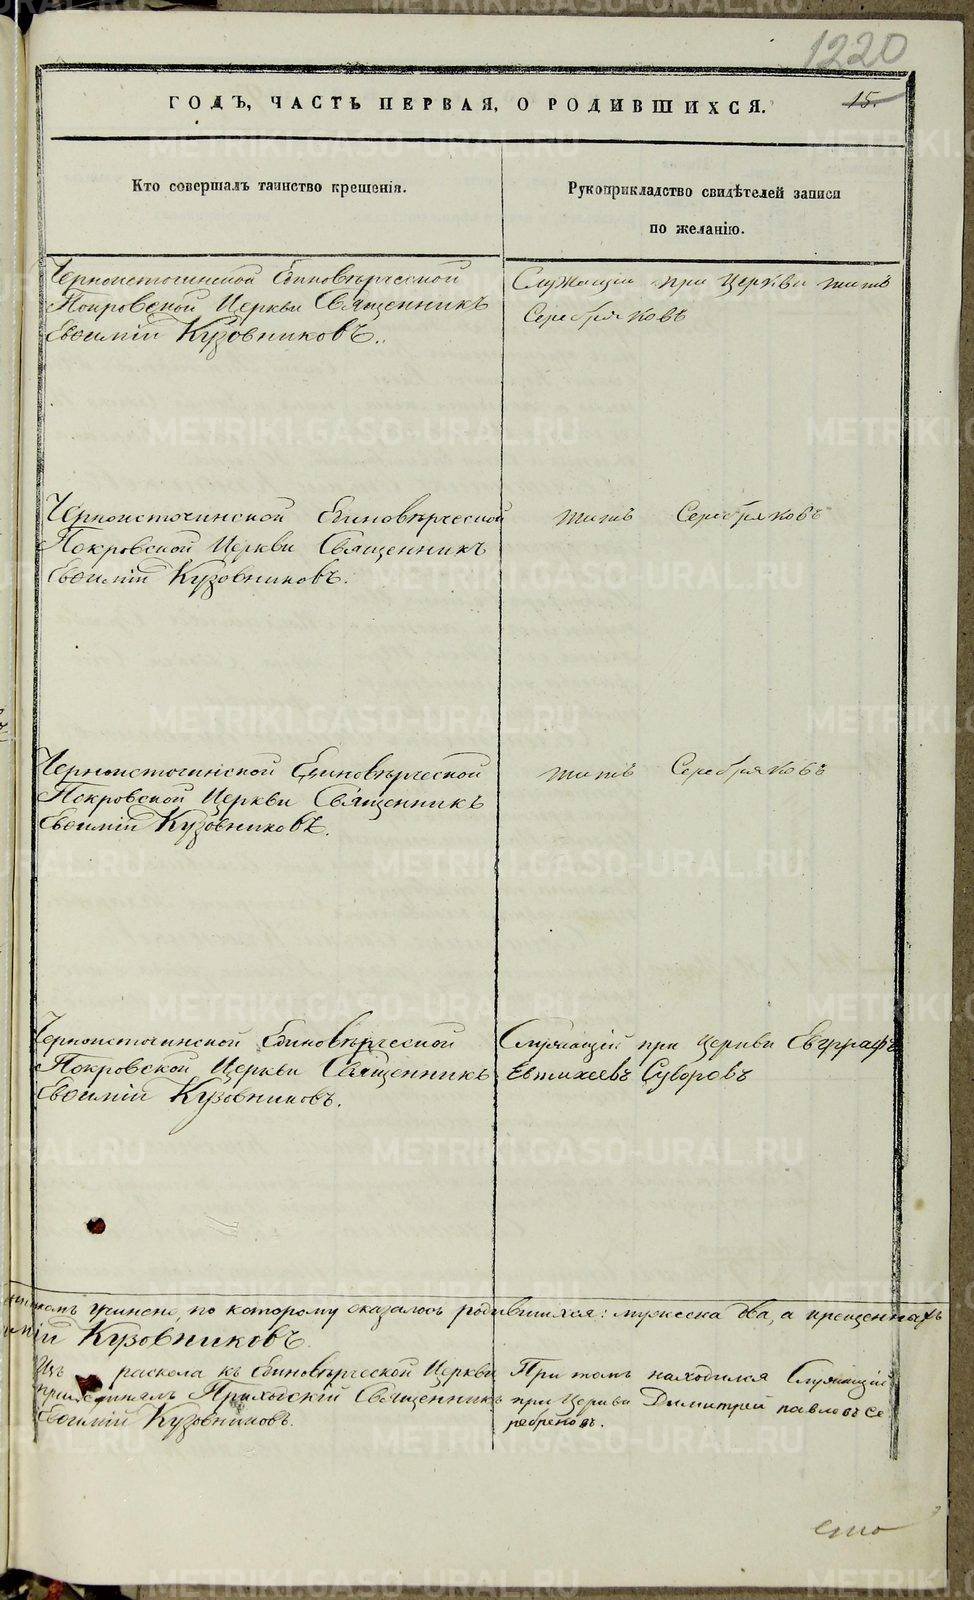 1220
ГОДЪ, ЧАСТЬ ПЕРВАЯ, О РОДИВШИХСЯ.
15.
Кто совершалъ таинство крещенія.
Рукоприкладство свидѣтелей записи
по желанію.
Черноисточинской Единовѣрческой
Покровской Церкви Священникъ
Евѳимій Кузовниковъ.
Служащій при Церкви Титъ
Серебряковъ
Черноисточинской Единовѣрческой
Покровской Церкви Священникъ
Евѳимій Кузовниковъ.
Титъ Серебряковъ
Черноисточинской Единовѣрческой
Покровской Церкви Священникъ
Евѳимій Кузовниковъ.
Титъ Серебряковъ
Черноисточинской Единовѣрческой
Покровской Церкви Священникъ
Евѳимій Кузовниковъ.
Служащій при Церкви Евграфъ
Евтихеевъ Суворовъ
учинено, по которому оказалось родившихся: мужеска два, а крещенныхъ
Кузовниковъ.
Изъ раскола къ Единовѣрческой Церкви
Приходскій Священникъ
Евѳимій Кузовниковъ.
При томъ находился Служащій
при Церкви Димитрей павловъ Се
ребреновъ.
METRIKI.GASO-URAL.RU